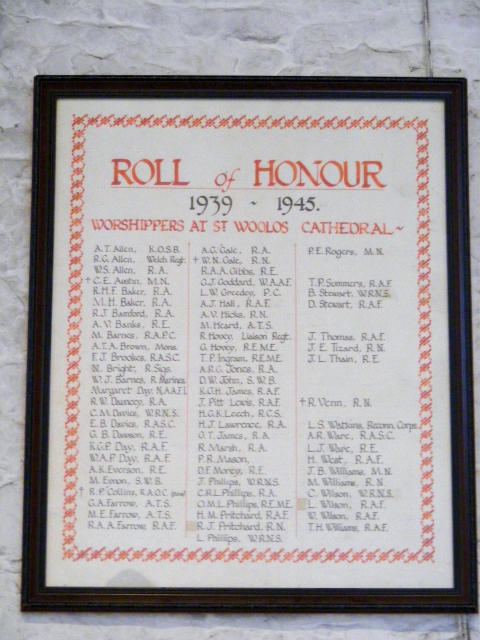 ROLL of HONOUR
1939 ~ 1945.
WORSHIPPERS AT ST WOOLOS CATHEDRAL~
A.T. Allen, K.O.S.B.
R.G. Allen, Welch Regt.
W.S. Allen, R.A.
† C.E. Austin, M.N.
R.H.F. Baker, R.A.
M.H. Baker, R.A.
R.J. Bamford, R.A.
A.V. Banks, R.E.
M. Barnes, R.A.P.C.
A.T.A. Brown, Mons.
F.J. Brookes, R.A.S.C.
N. Bright, R. Sigs.
W.J. Barnes, R. Marines
Margaret Day, N.A.A.F.I.
R.W. Dauncey, R.A.
C.M. Davies, W.R.N.S.
E.B. Davies, R.A.S.C.
G.B. Dawson, R.E.
K.G.P. Day, R.A.F.
W.A.P. Day, R.A.F.
A.K. Everson, R.E.
M. Eynon, S.W.B.
† R.P. Collins, R.A.O.C.
G.A. Farrow, A.T.S.
M.E. Farrow, A.T.S.
R.A.A. Farrow, R.A.F.
A.G. Gale, R.A.
† W.N. Gale, R.N.
R.A.A. Gibbs, R.E.
G.J. Goddard, W.A.A.F.
L.W. Greedey, P.C.
A.J. Hall, R.A.F.
A.V. Hicks, R.N.
M. Heard, A.T.S.
R. Hovey, Liaison Regt.
G. Hovey, R.E.M.E.
T.P. Ingram, R.E.M.E.
A.R.G. Jones, R.A.
D.W. John, S.W.B.
R.G.H. James, R.A.F.
J. Pitt Lewis, R.A.F.
H.G.K. Leech, R.C.S.
H.J. Lawrence, R.A.
G.T. James, R.A.
R. Marsh, R.A.
P.R. Mason,
D.F. Morey, R.E.
J. Phillips, W.R.N.S.
C.R.L. Phillips, R.A.
O.M.L. Phillips, R.E.M.E.
H.M. Pritchard, R.A.F.
R.J. Pritchard, R.N.
L. Phillips, W.R.N.S.
P.E. Rogers, M.N.
T.P. Summers, R.A.F.
B. Stewart, W.R.N.S.
D. Stewart, R.A.F.
J. Thomas, R.A.F.
J.E. Tizard, R.N.
J.L. Thain, R.E.
† R. Venn, R.N.
L.S. Watkins, Reconn. Corps.
A.R. Ware, R.A.S.C.
L.J. Ware, R.E.
H. West, R.A.F.
J.B. Williams, M.N.
M. Williams, R.N.
C. Wilson, W.R.N.S.
L. Wilson, R.A.F.
W. Wilson, R.A.F.
T.H. Williams, R.A.F.